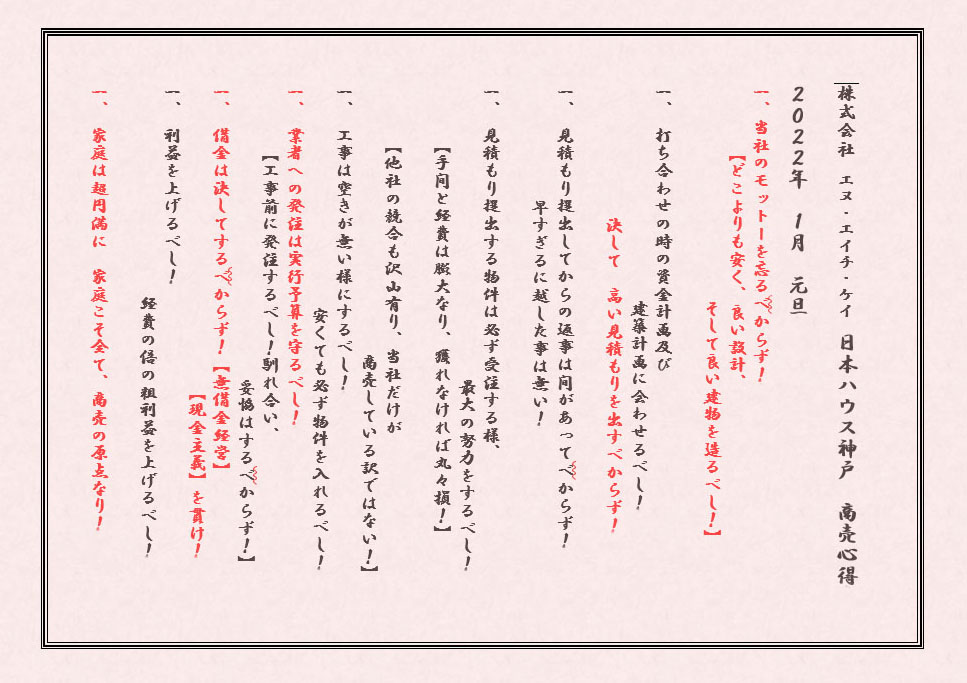 株式会社 エヌ・エイチ・ケイ 日本ハウス神戸 商売心得
2022年 1月 元旦
一、当社のモットーを忘るべからず！
【どこよりも安く、良い設計、
そして良い建物を造るべし！】
一、打ち合わせの時の資金計画及び
建築計画に会わせるべし！
決して 高い見積もりを出すべからず！
一、見積もり提出してからの返事は間があってべからず！
早すぎるに越した事は無い！
一、見積もり提出する物件は必ず受注する様、
最大の努力をするべし！
【手間と経費は膨大なり、獲れなければ丸々損！】
【他社の競合も沢山有り、当社だけが
商売している訳ではない！】
一、工事は空きが無い様にするべし！
安くても必ず物件を入れるべし！
一、業者への発注は実行予算を守るべし！
【工事前に発注するべし！馴れ合い、
妥協はするべからず！】
一、借金は決してするべからず！【無借金経営】
【現金主義】を貫け！
一、利益を上げるべし！
経費の倍の粗利益を上げるべし！
一、家庭は超円満に 家庭こそ全て、商売の原点なり！